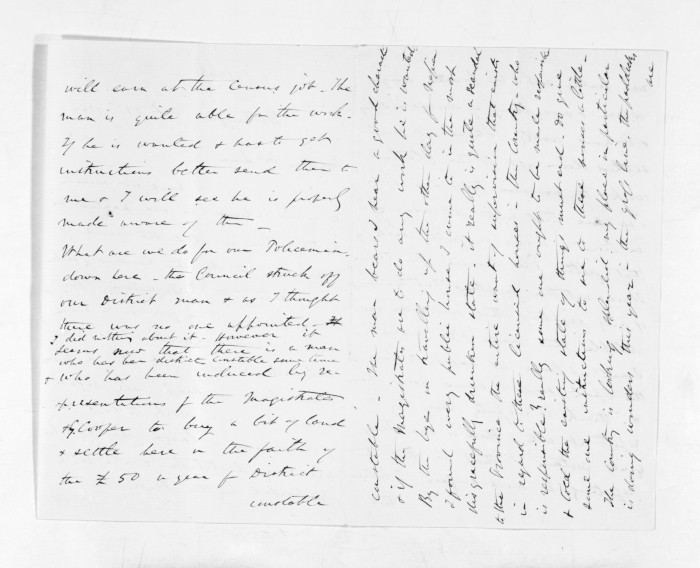 will earn at the Census job. The
man is quite able for the work.
If he is wanted & has to get
instructions better send them to
me & I will see he is properly
made aware of them —
What are we to do for our Policeman
down here — the Council struck off
our District man & as I thought
there was no one appointed. It
I did nothing about it. However it
seems now that there is a man
who has been district constable some time
& who has been induced by re-
-presentations of the Magistrates
& Cooper to buy a bit of land
& settle here on the faith of
the £50 a year for District
constable
constable — The man bears I hear a good character
& if the Magistrates see to do any work he is wanted
By the bye in travelling up the other day from Napier
I found every public house I came to in the most
disgracefully drunken state — it really is quite a scandal
to the Province the entire want of supervision that exists
in regard to these licensed houses in the Country — who
is responsible? really some one ought to be made responsible
& told the existing state of things must end — do give
some one instructions to see to these houses a little —
The Country is looking splendid, my place in particular
is doing wonders this year — the grass here, the paddocks
are